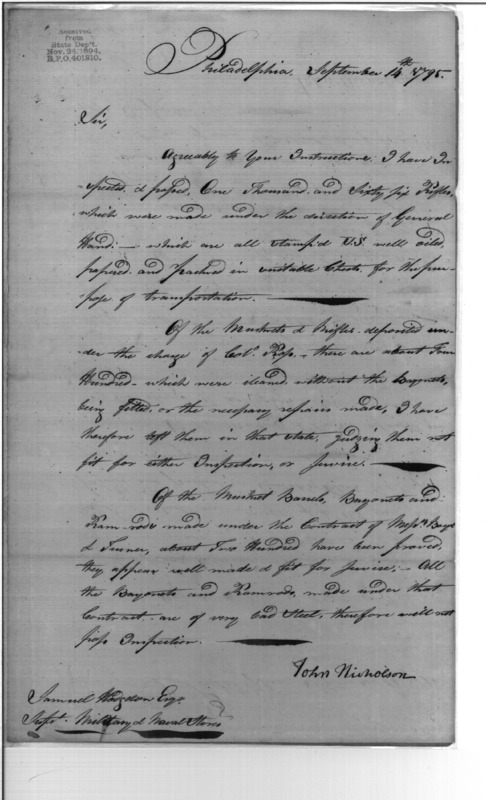 Received
from
State Dep't.
Nov. 24, 1894,
R.P.O. 401310.
Philadelphia, September 14th 1795.
Sir,
Agreeably to Your Instructions I have In
-spected & passed, One Thousand and Sixty six Rifles,
which were made under the direction of General
Hand: — which are all Stamp'd U.S. well oiled,
papered and packed in suitable Chests, for the pur-
pose of transportation. —
Of the Muskets & Rifles deposited un-
der the charge of Colo. Rose, — there are about Four
Hundred — which were cleaned without the Bayonets,
being fitted, or the necessary repairs made, I have
therefore left them in that state, judging them not
fit for either Inspection, or Service. —
Of the Musket Barrels, Bayonets and
Ram-rods made under the Contract of Messrs.
& Turner, about Two Hundred have been proved,
they appear well made & fit for Service; — All
the Bayonets and Ramrods, made under that
Contract are of very bad Steel, therefore will not
pass Inspection. —
John Nicholson
Samuel Hodgdon Esqr.
Supt. Military & Naval Stores